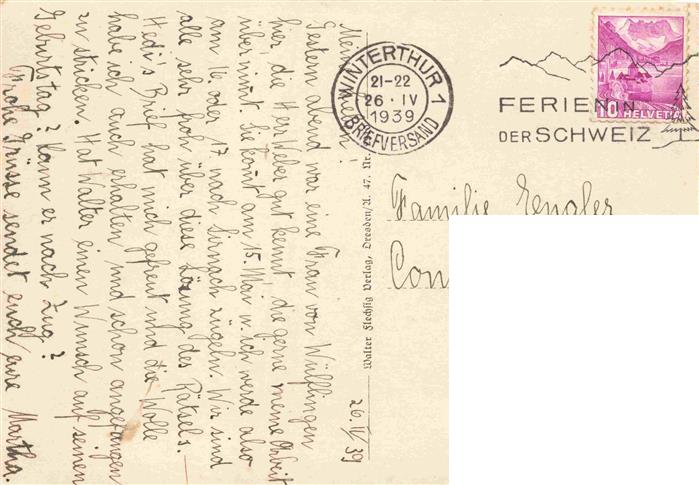 26.IV.39
Meine Lieben!
Gestern abend war eine Frau von Wülflingen
hier, die Herr Weber gut kennt, die gerne meine Arbeit
übernimmt. Sie kommt am 15. Mai u. ich werde also
am 16 oder 17 nach Sirnach zügeln. Wir sind
alle sehr froh über diese Lösung des Rätsels.
Hedi's Brief hat mich gefreut und die Wolle
habe ich auch erhalten und schon angefangen
zu stricken. Hat Walter einen Wunsch auf seinen
Geburtstag? Kann er nach Zug?
Frohe Grüsse sendet euch eure Martha.
Walter Flechsig Verlag, Dresden/A. 47. Nr.
WINTERTHUR 1
21-22
26·IV
1939
BRIEFVERSAND
FERIEN IN
DER SCHWEIZ
10 HELVETIA
Familie Engler
Con